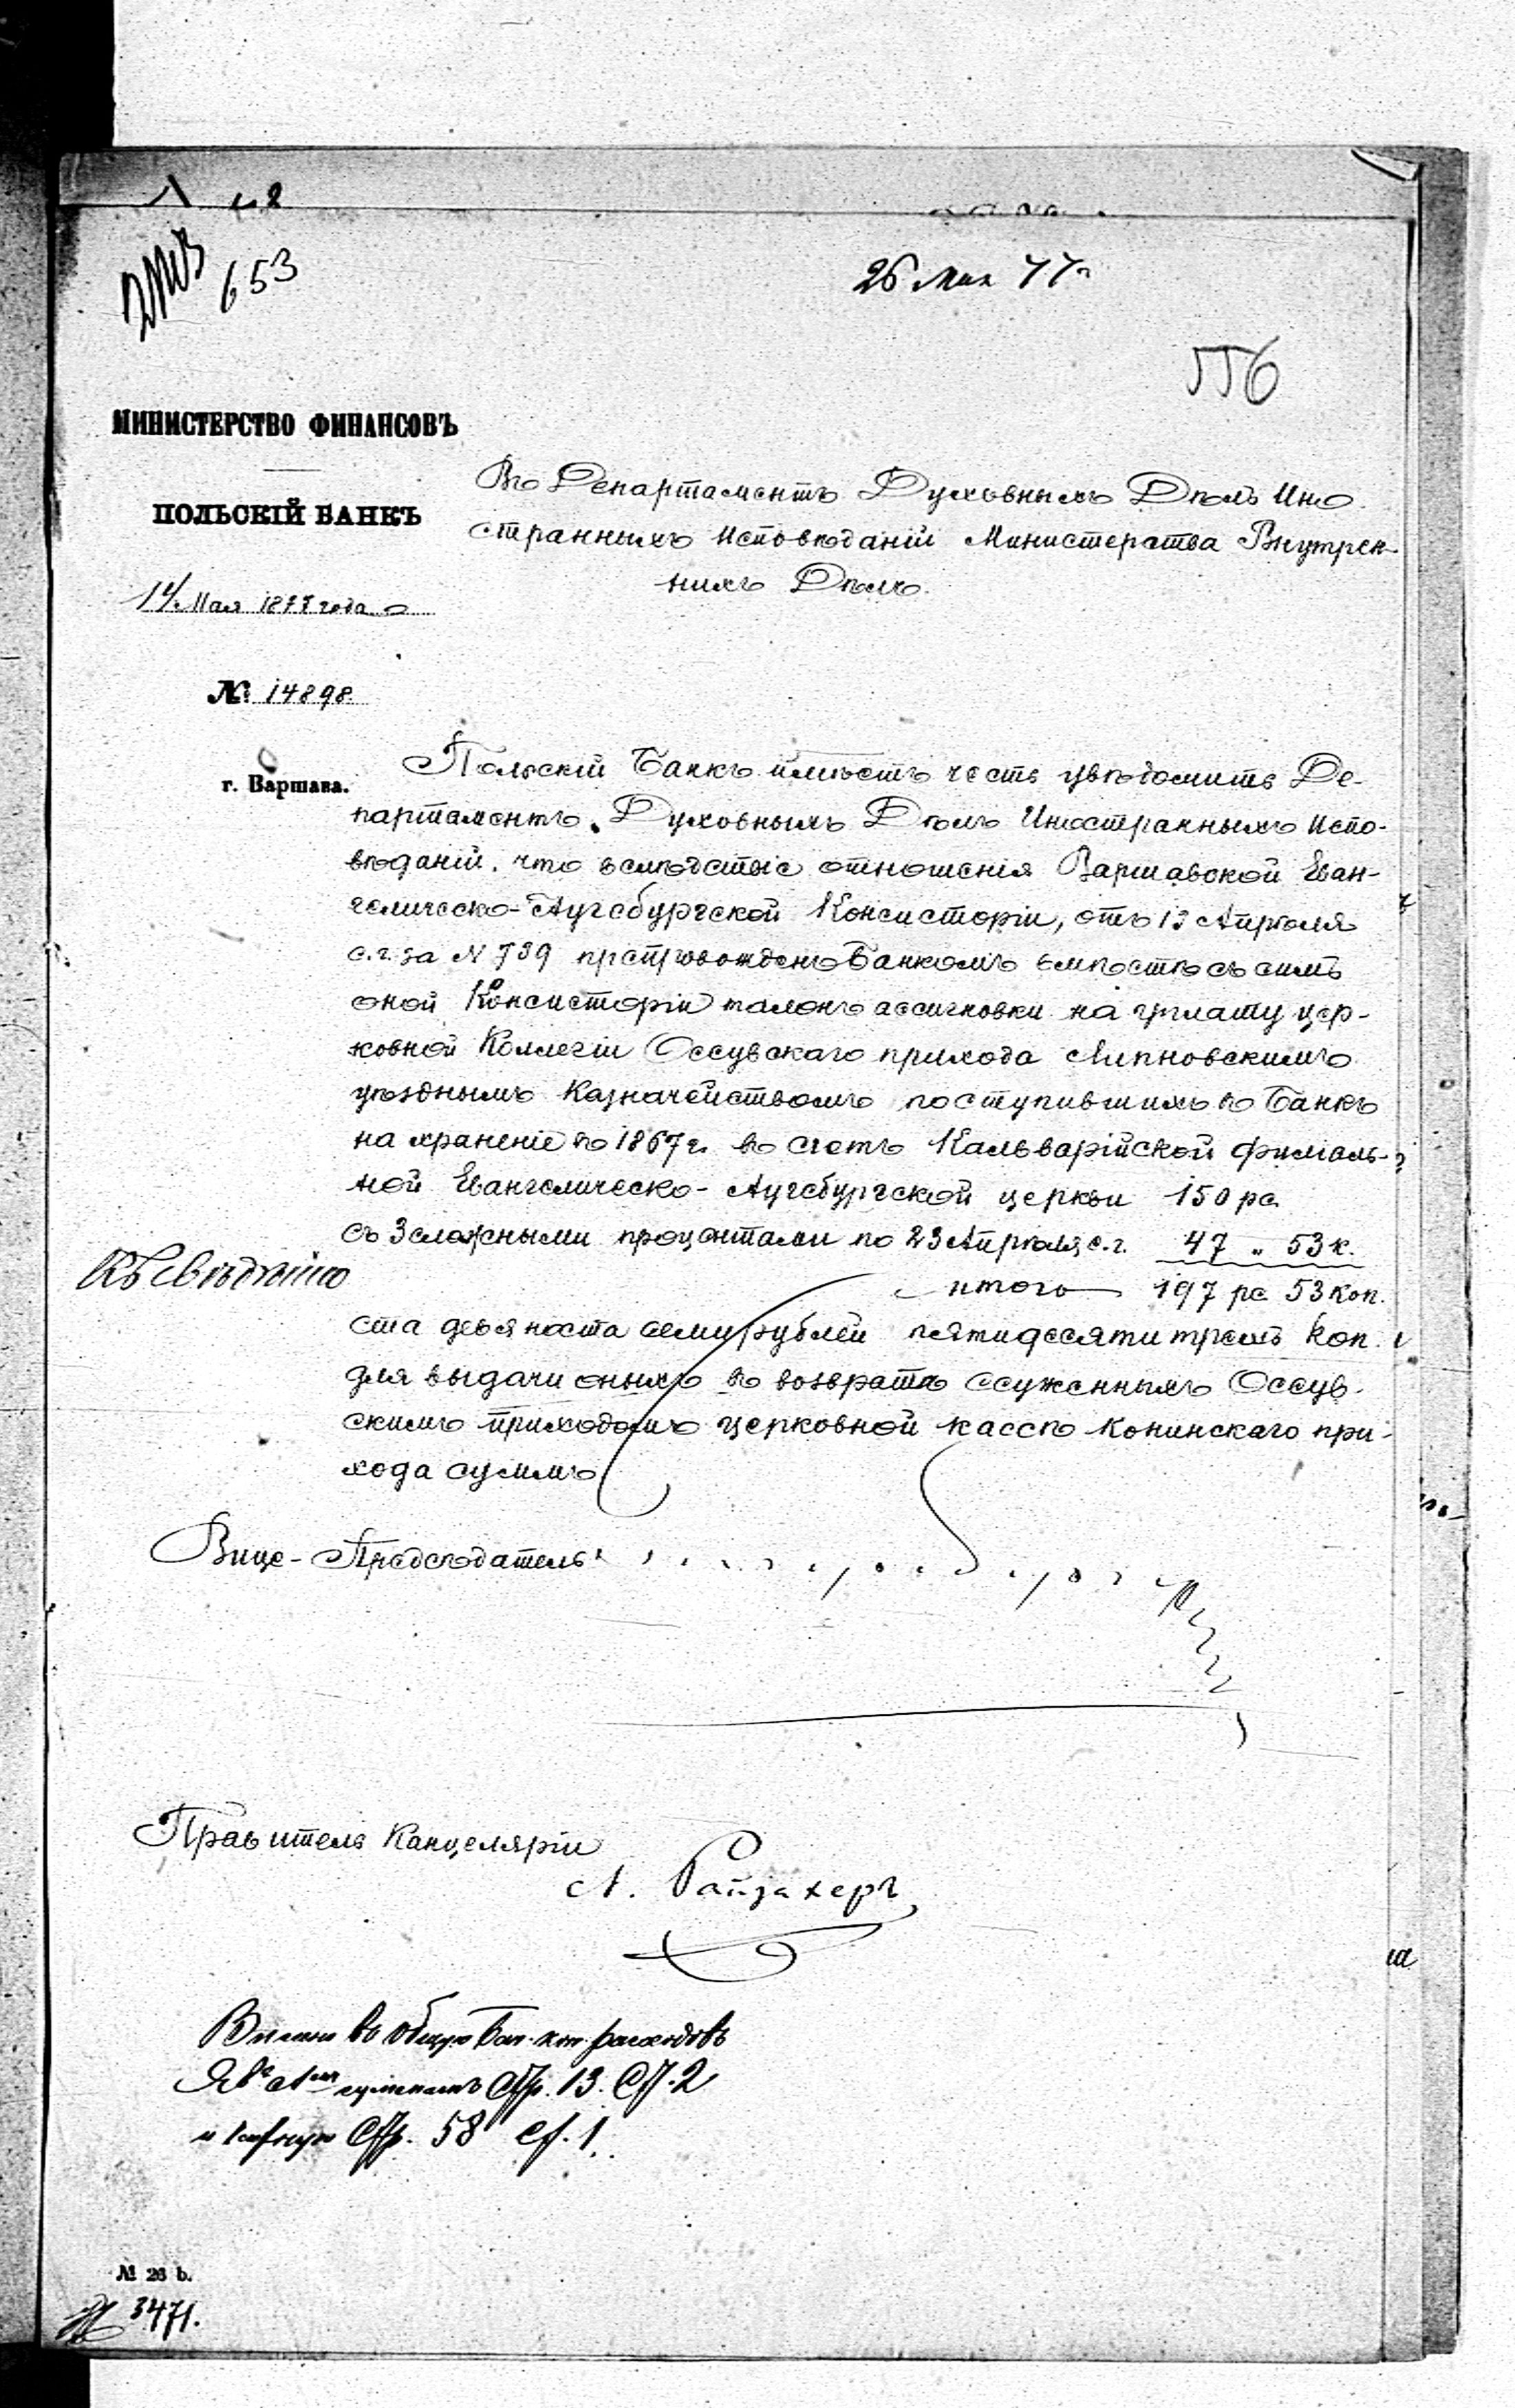 653
26 Мая 77 г
556
МИНИСТЕРСТВО ФИНАНСОВЪ
ПОЛЬСКІЙ БАНКЪ
14 Мая 1877 года
№ 14898.
г. Варшава.
Въ Департаментъ Духовныхъ Дѣлъ Ино
странныхъ Исповѣданій Министерства Внутрен-
нихъ Дѣлъ.
Польскій Банкъ имѣетъ честь увѣдомить Де-
партаментъ Духовныхъ Дѣлъ Иностранныхъ Испо-
вѣданій, что вслѣдствіе отношенія Варшавской Еван-
гелическо-Аугсбургской Консисторіи, отъ 13 Апрѣля
с.г. за № 739 препровожденъ Банкомъ вмѣстѣ съ симъ
оной Консисторіи талонъ ассигновки на уплату цер-
ковной Коллегіи Оссувскаго прихода Липновскимъ
уѣзднымъ Казначействомъ поступившихъ въ Банкъ
на храненіе въ 1867 г. въ счетъ Кальварійской филіаль-
ной Евангелическо-Аугсбургской церкви 150 рс.
съ 3 сложными процентами по 23 Апрѣля с.г. 47 „ 53 к.
итого 197 рс 53 коп.
Къ свѣдѣнію
ста девяноста семи рублей пятидесяти трехъ коп.
для выдачи оныхъ въ возвратъ ссуженныхъ Оссув-
скимъ приходомъ церковной кассѣ Конинскаго при-
хода суммъ
Вице-Предсѣдатель
Правитель Канцеляріи
Л. Райзахеръ
Стр. 13. Ст. 2
Стр. 58 Ст. 1.
№ 26 b.
3471.